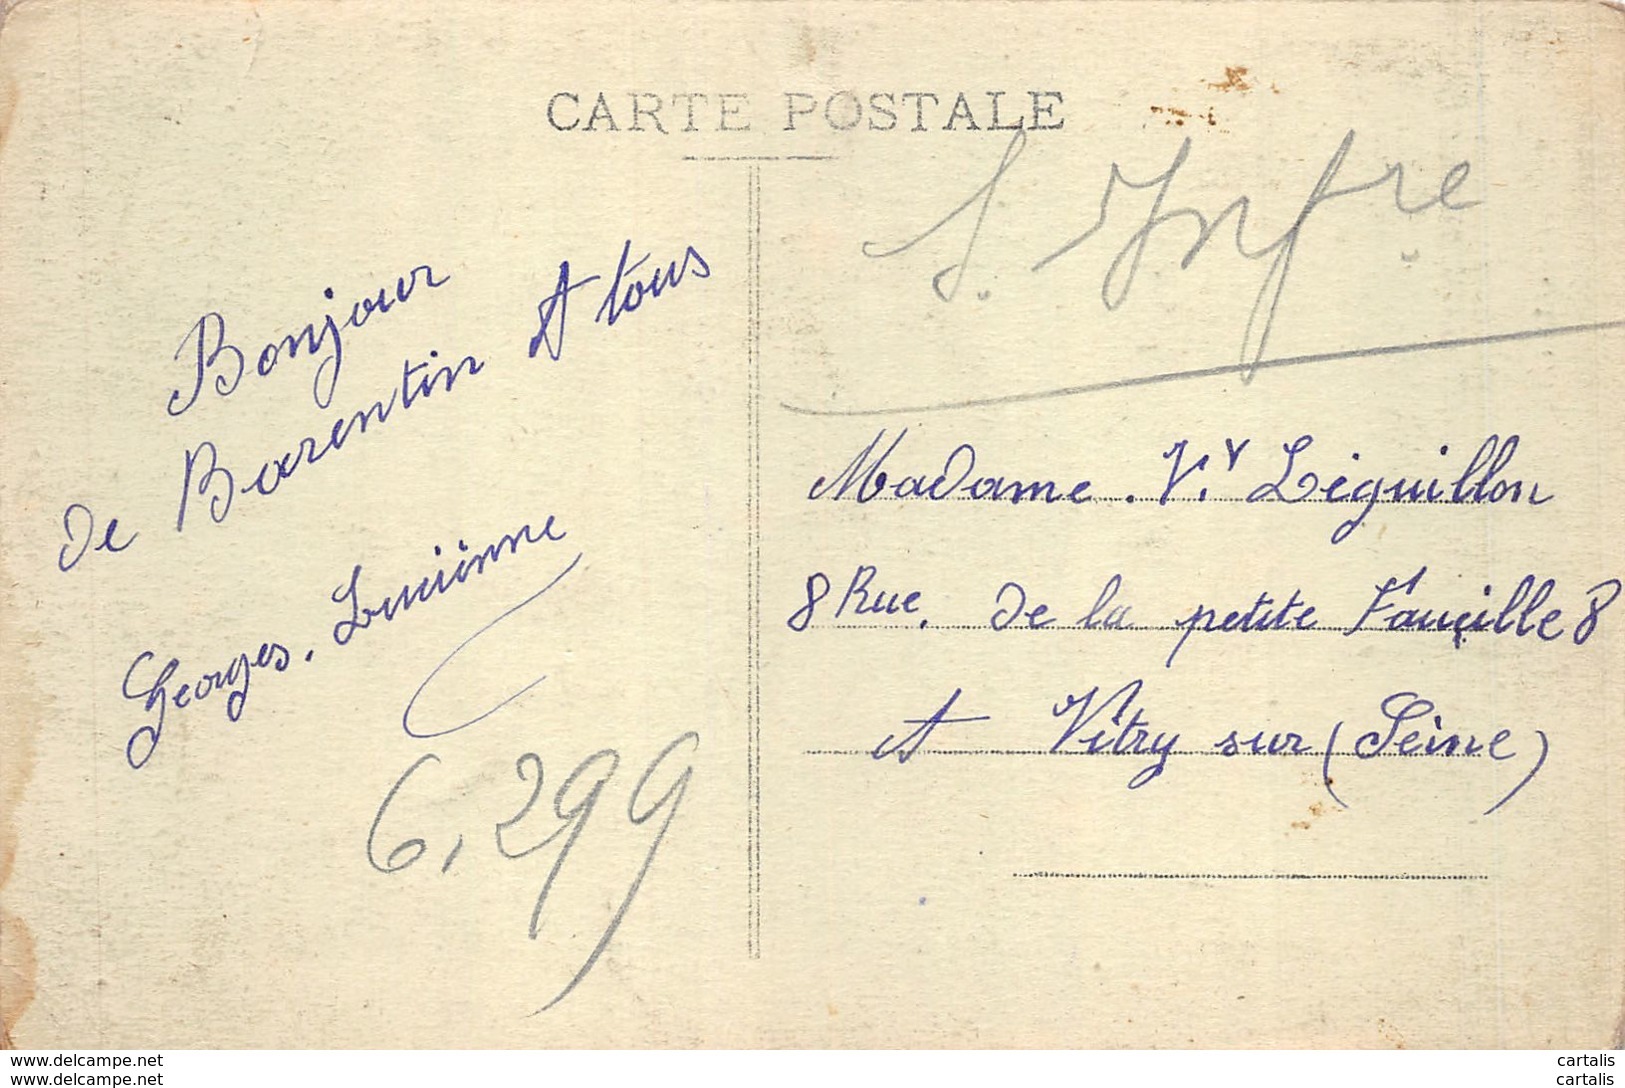 CARTE POSTALE
S. Infre
Bonjour
de Barentin A tous
Georges.
6,299
Madame. Vv Liguillon
8 Rue. de la petite Fauçille 8
A Vitry sur (Seine)
www.delcampe.net
www.delcampe.net
cartalis
cartalis